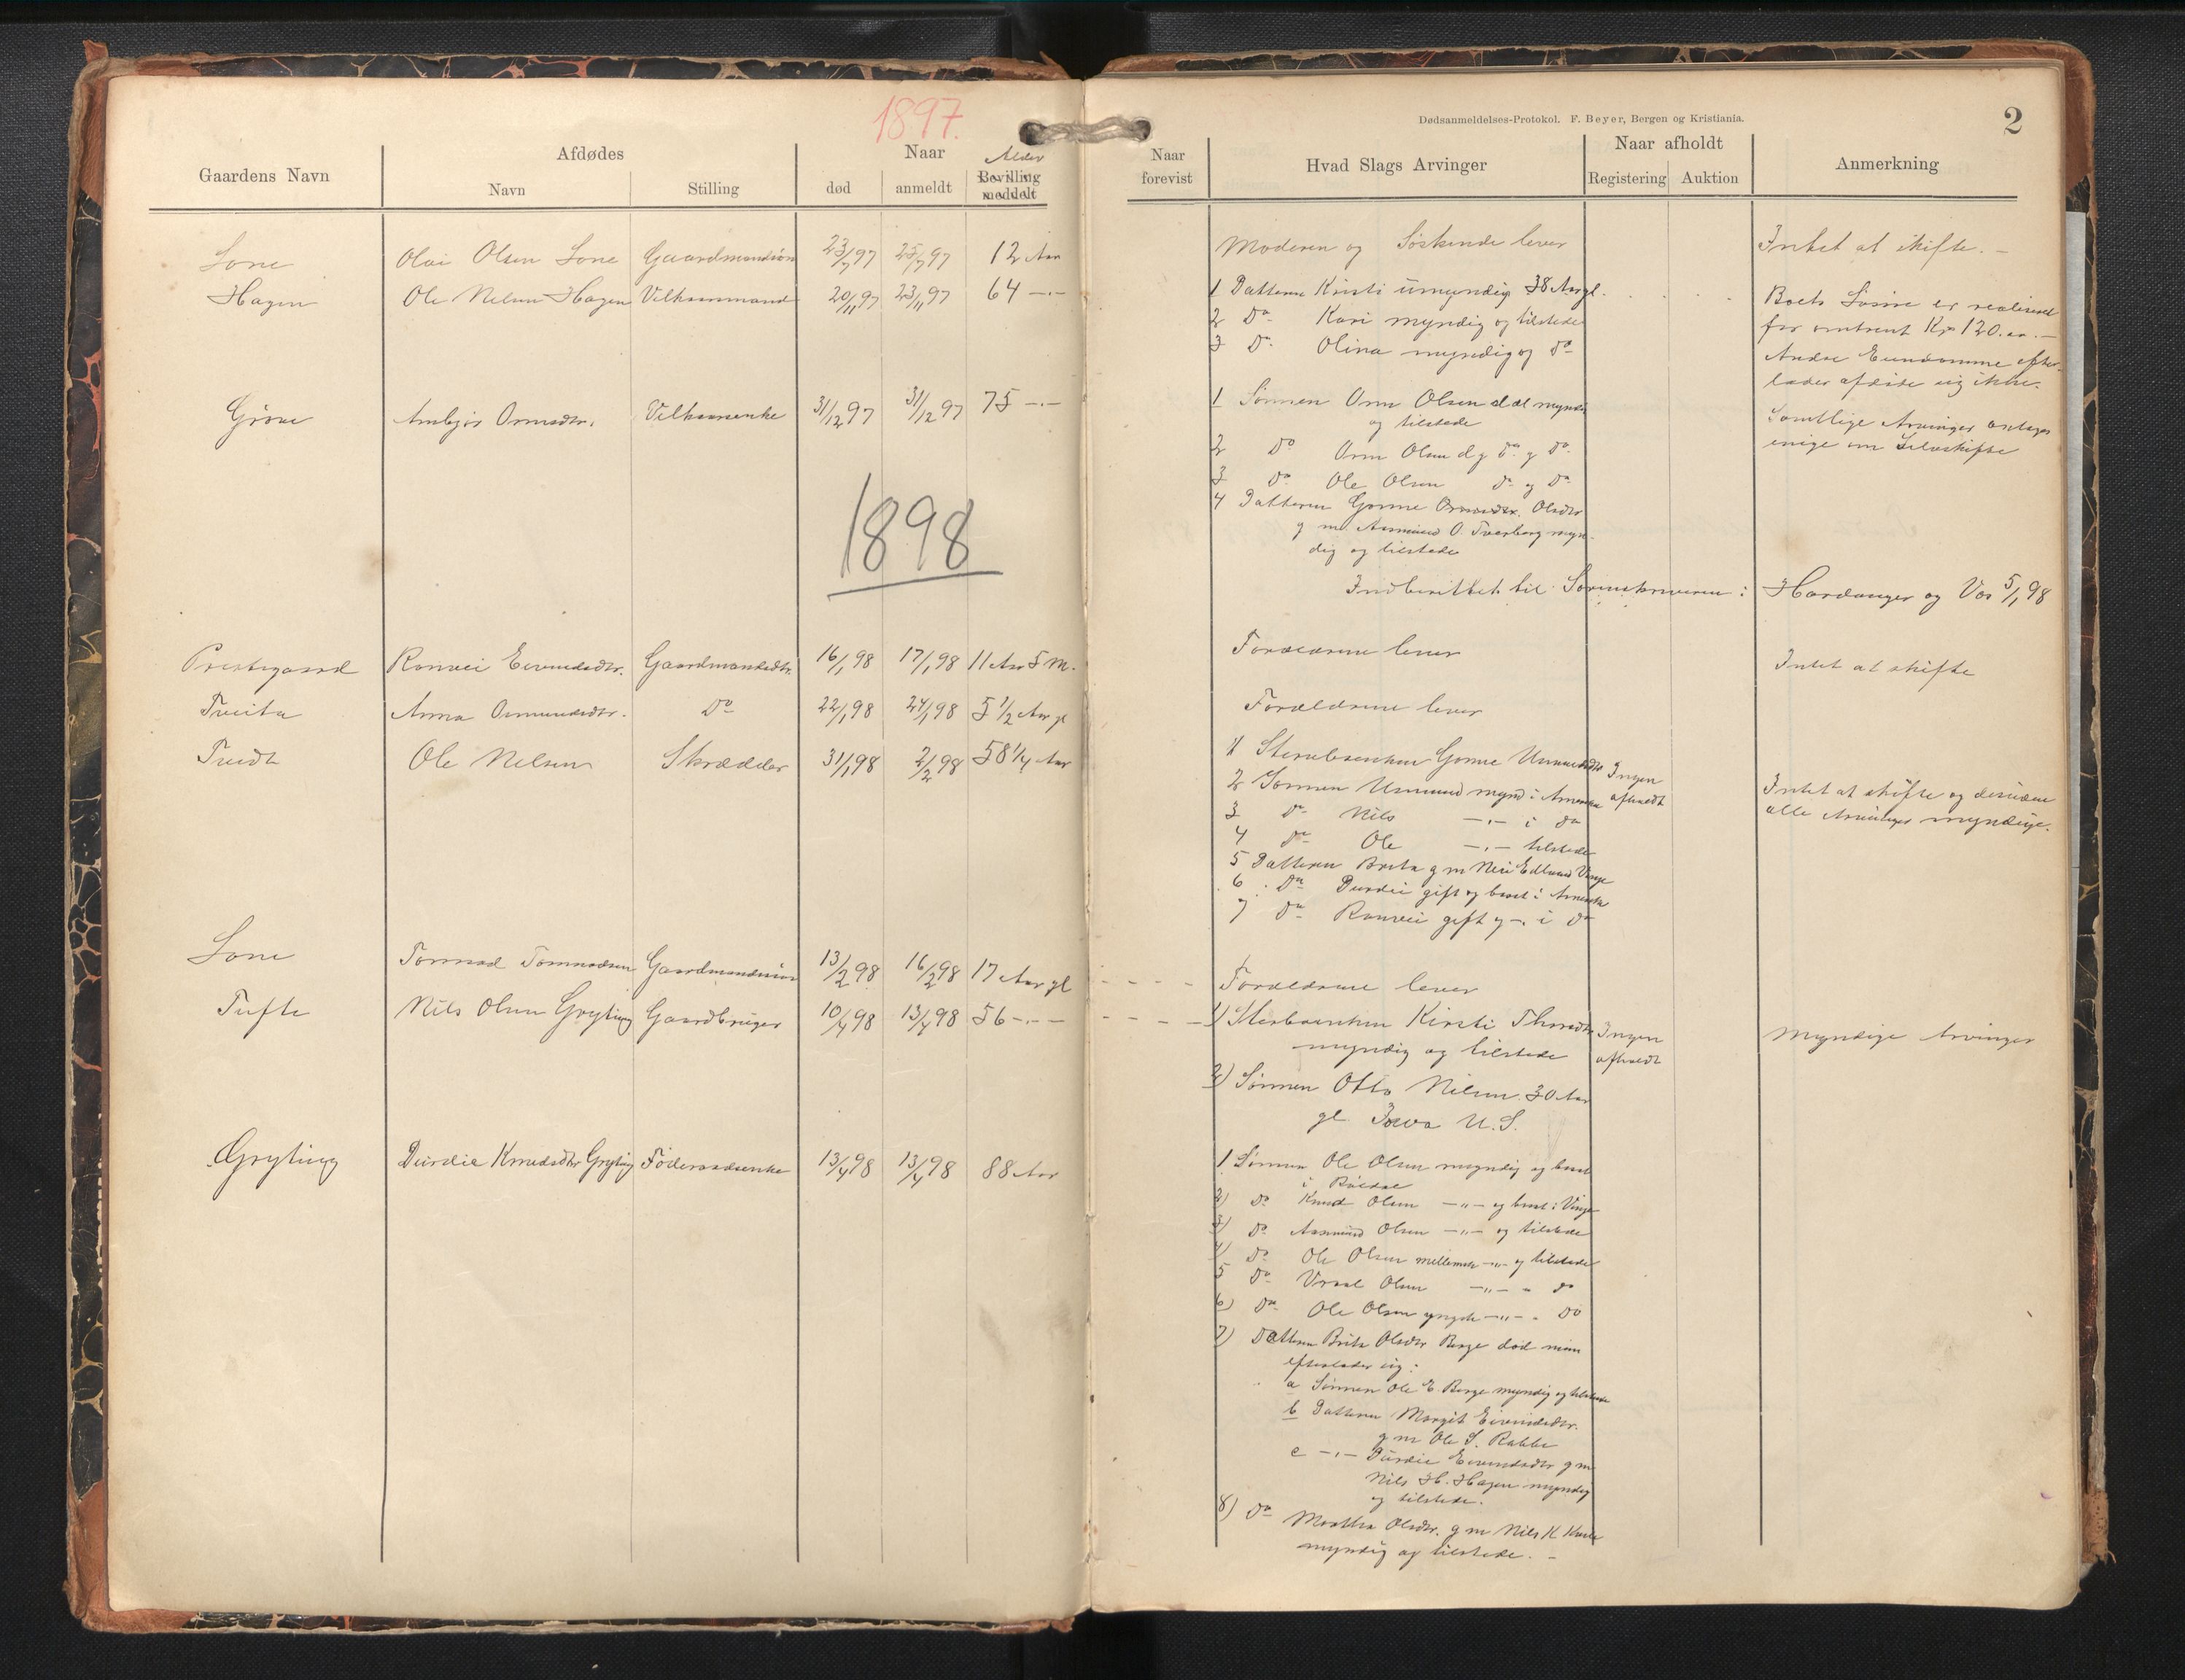 1897.
Dødsanmeldelses-Protokol. F. Beyer, Bergen og Kristiania.
2
Gaardens Navn
Afdødes
Navn
Stilling
Naar
død
anmeldt
Alder
Bevilling
meddelt
Naar
forevist
Hvad Slags Arvinger
Naar afholdt
Registering
Auktion
Anmerkning
Lone
Olai Olsen Lone
Gaardmandssøn
23/7 97
25/7 97
12 Aar
Moderen og Søskende lever
Intet at skifte. -
Hagen
Ole Nelsen Hagen
Vilkaarsmand
20/11 97
23/11 97
64 -"-
1 Datteren Kristi umyndig 38 Aar gl.
2 Do Kari myndig og tilstede
3 Do Olina myndig og Do
Boets Løsøre er realiseret
for omtrent Kr 120.
Andre Eiendomme efter-
lader afdøde sig ikke.
Grøne
Ambjør Ormsdtr.
Vilkaarsenke
31/12 97
31/12 97
75 -"-
1 Sønnen Orm Olsen myndig
og tilstede
2 Do Orm Olsen d y Do og Do
3 Do Ole Olsen Do og Do
4 Datteren Gunne Olsdtr
g m. Aamund O. Tveborg myn-
dig og tilstede
Samtlige Arvinger antages
enige om Selvskifte
1898
Indberettet til Sorenskriveren i Hardanger og Vos 5/1 98
Prestegaard
Ranvei Eivindsdtr.
Gaardmandsdtr.
16/1 98
17/1 98
11 Aar 5 M.
Forældrene lever
Intet at skifte
Tveita
Anna Osmundsdtr.
Do
22/1 98
24/1 98
5 1/2 Aar gl
Forældrene lever
Tveidt
Ole Nelsen
Skrædder
31/1 98
2/2 98
58 1/4 Aar
1 Sterbosenken Gunne
2 Sønnen mynd i Amerika
3 Do Nils -"- i Do
4 Do Ole -"- tilstede
5 Datteren Brita g m
6 Do Durdei gift og bosat i Amerika
7 Do Ranvei gift og -"- i Do
Ingen
afholdt
Intet at skifte og desuden
alle Arvinger myndige.
Lone
Tormod Tormodsen
Gaardmandssøn
13/2 98
16/2 98
17 Aar gl
Forældrene lever
Tufte
Nils Olsen Gryting
Gaardbruger
10/4 98
13/4 98
56 -"-
1) Sterbosenken Kirsti
myndig og tilstede
2) Sønnen Otto Nilsen 30 Aar
gl. Iowa U.S.
Ingen
afholdt
Myndige Arvinger
Gryting
Durdei Knudsdtr Gryting
Føderaadsenke
13/4 98
13/4 98
88 Aar
1 Sønnen Ole Olsen myndig og bosat
i Røldal
2) Do Knud Olsen -"- og bosat i Vinje
3) Do Aasmund Olsen -"- og tilstede
4) Do Ole Olsen mellemste -"- og tilstede
5 Do Olsen -"- Do
6) Do Ole Olsen yngste -"- Do
7) Datteren Brita Olsdtr Berge død men
efterlader sig:
a Sønnen Ole E. Berge myndig og tilstede
b Datteren Margit Eivindsdtr.
g m Ole S. Rabbe
c -"- Durdei Eivindsdtr g m
Nils H. Hagen myndig
og tilstede.
8) Do Martha Olsdtr. g m Nils K
myndig og tilstede. -